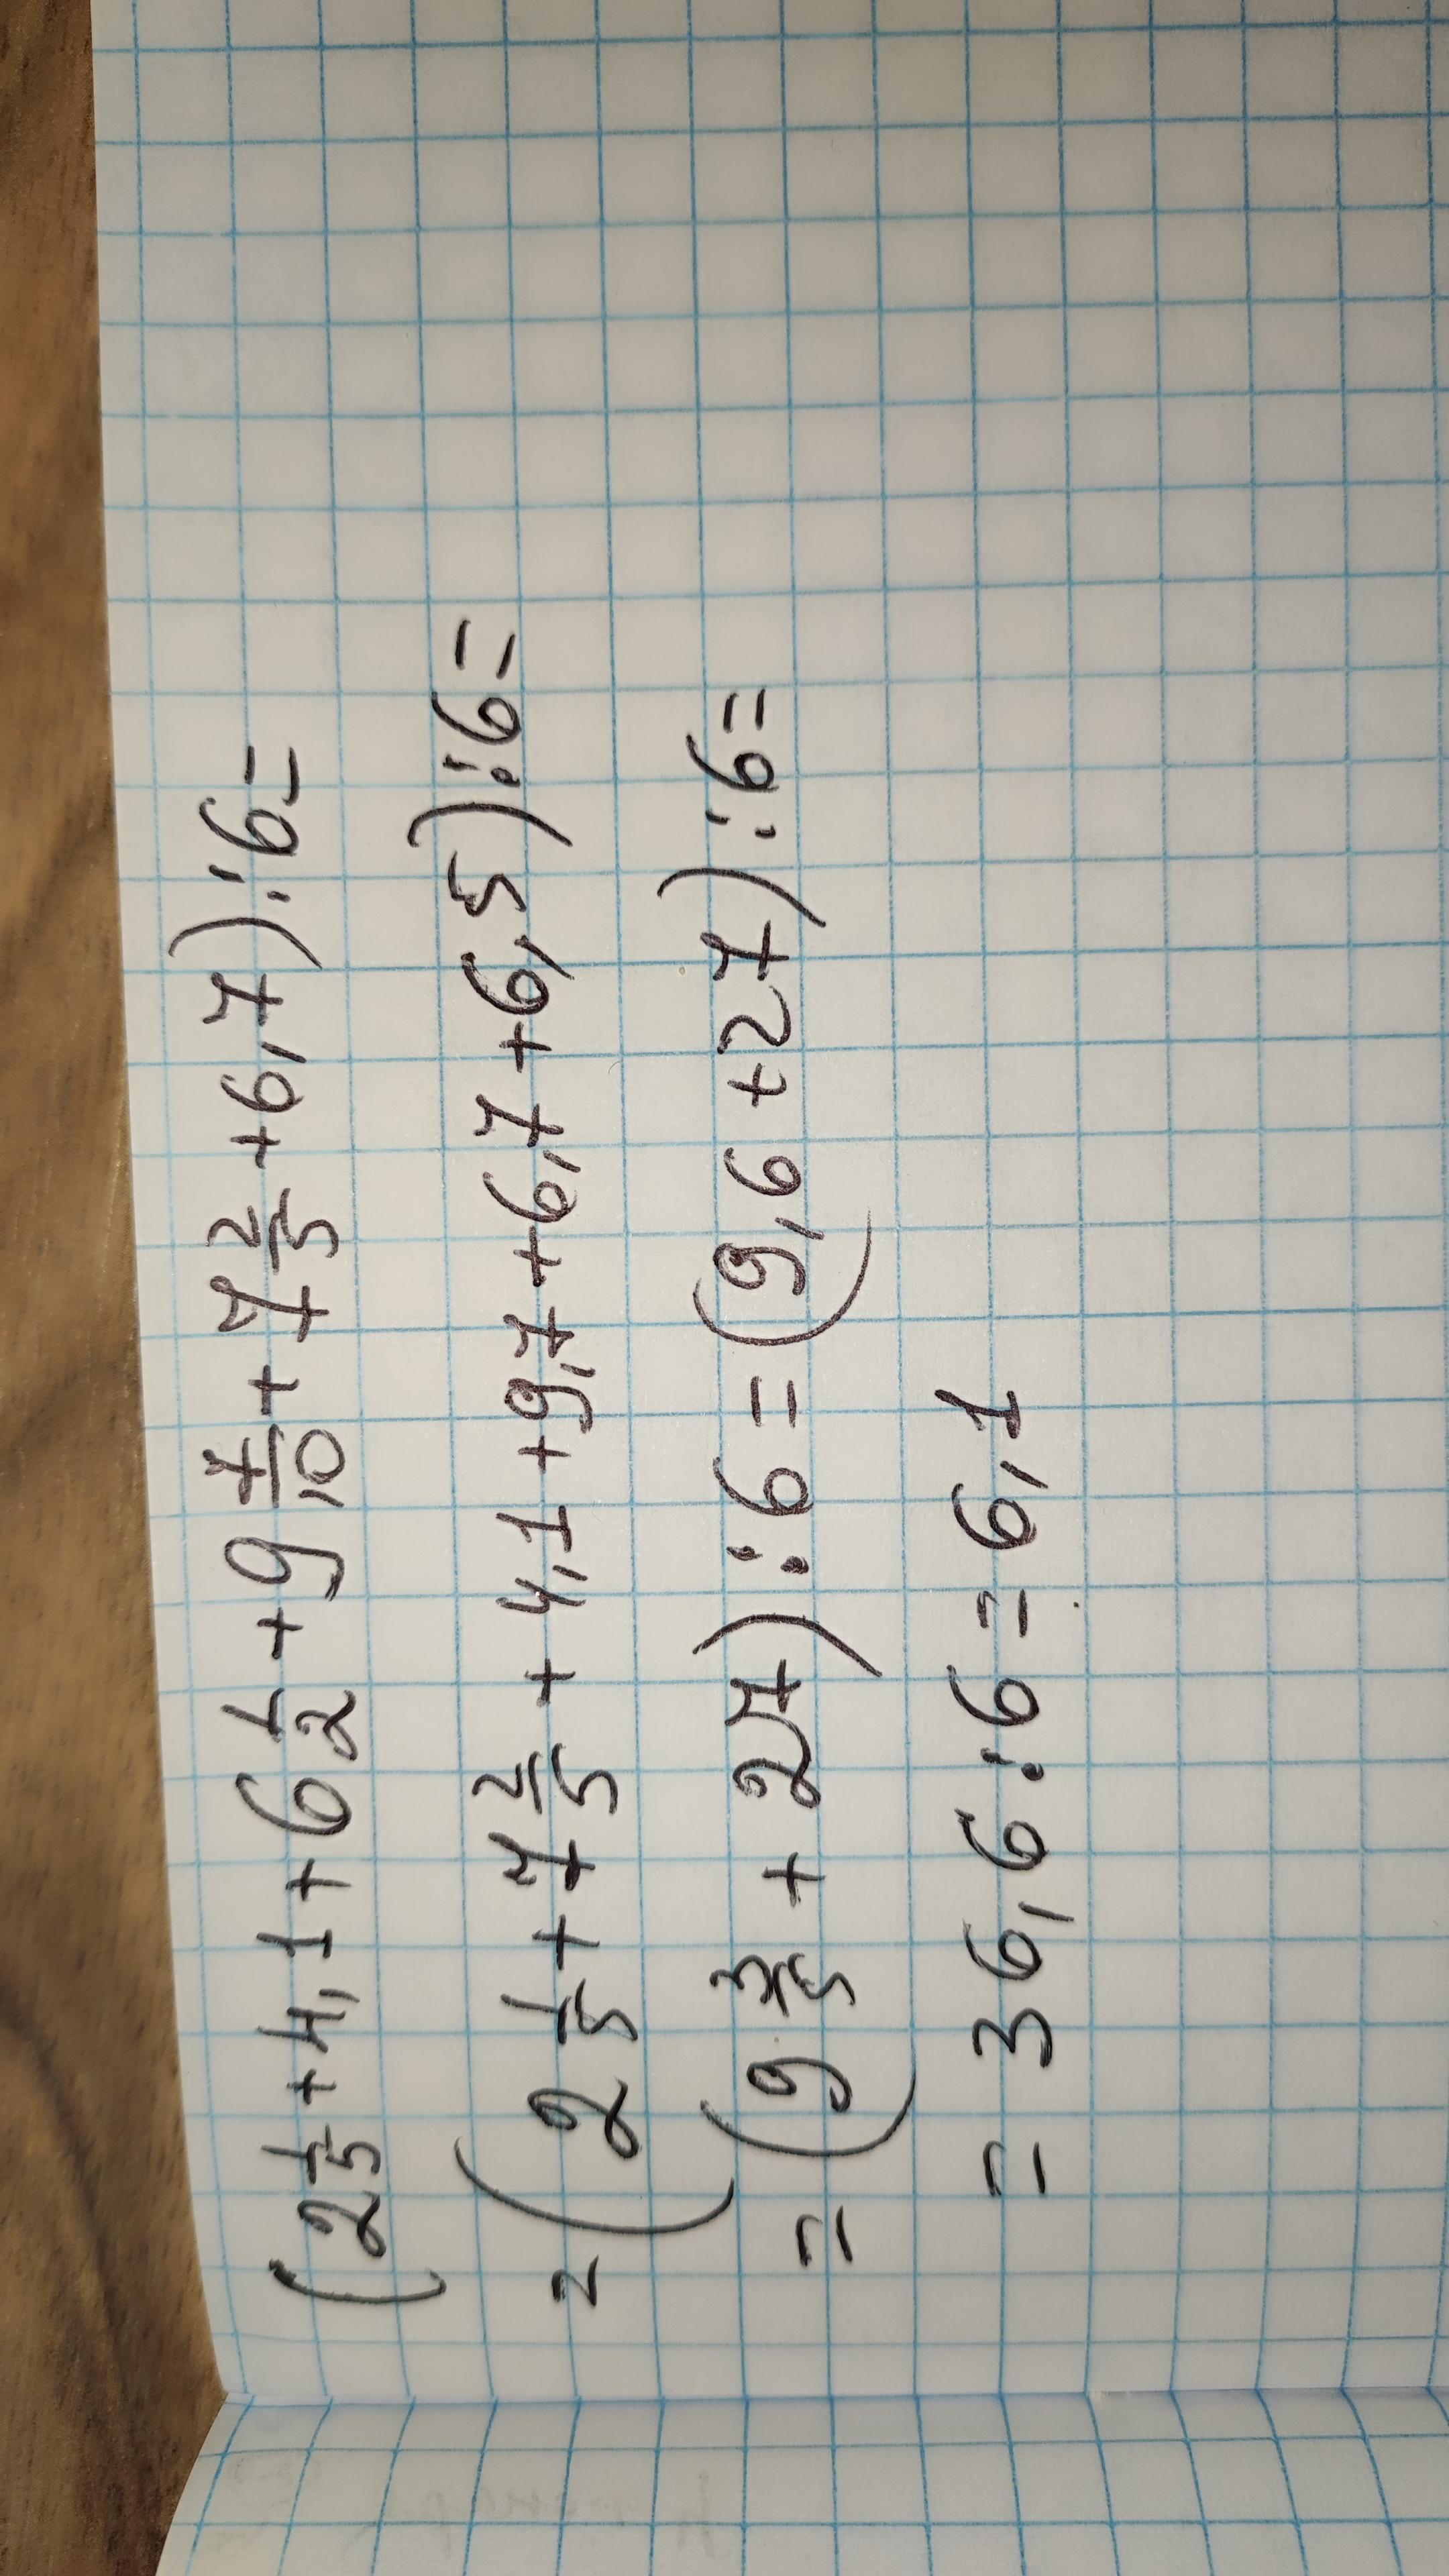 (2 1/5 + 4,1 + 6 1/2 + 9 7/10 + 7 2/5 + 6,7) : 6 =
= (2 1/5 + 7 2/5 + 4,1 + 9,7 + 6,7 + 6,5) : 6 =
= (9 3/5 + 27) : 6 = (9,6 + 27) : 6 =
= 36,6 : 6 = 6,1